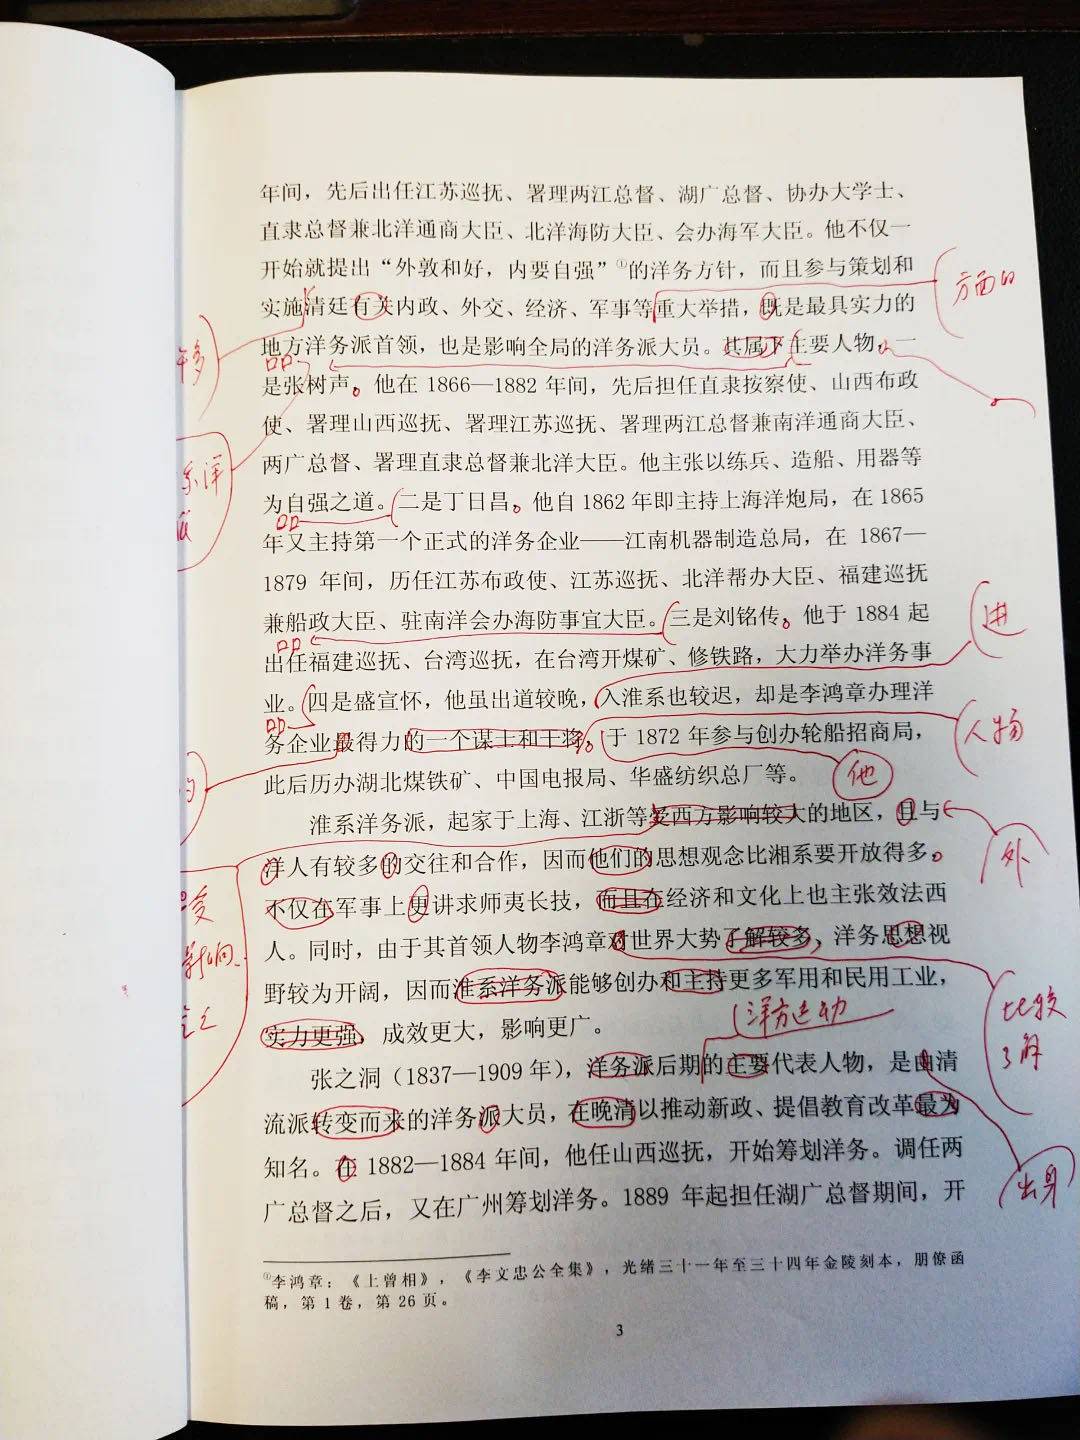 年间，先后出任江苏巡抚、署理两江总督、湖广总督、协办大学士、
直隶总督兼北洋通商大臣、北洋海防大臣、会办海军大臣。他不仅一
开始就提出“外敦和好，内要自强”①的洋务方针，而且参与策划和
方面的
实施清廷有关内政、外交、经济、军事等重大举措，既是最具实力的
地方洋务派首领，也是影响全局的洋务派大员。其属下主要人物，一
是张树声。他在 1866—1882 年间，先后担任直隶按察使、山西布政
使、署理山西巡抚、署理江苏巡抚、署理两江总督兼南洋通商大臣、
两广总督、署理直隶总督兼北洋大臣。他主张以练兵、造船、用器等
为自强之道。二是丁日昌。他自 1862 年即主持上海洋炮局，在 1865
年又主持第一个正式的洋务企业——江南机器制造总局，在 1867—
1879 年间，历任江苏布政使、江苏巡抚、北洋帮办大臣、福建巡抚
兼船政大臣、驻南洋会办海防事宜大臣。三是刘铭传。他于 1884 起
进
出任福建巡抚、台湾巡抚，在台湾开煤矿、修铁路，大力举办洋务事
业。四是盛宣怀，他虽出道较晚，入淮系也较迟，却是李鸿章办理洋
人物
务企业最得力的一个谋士和干将。于 1872 年参与创办轮船招商局，
他
此后历办湖北煤铁矿、中国电报局、华盛纺织总厂等。
淮系洋务派，起家于上海、江浙等受西方影响较大的地区，且与
外
洋人有较多的交往和合作，因而他们的思想观念比湘系要开放得多。
不仅在军事上更讲求师夷长技，而且在经济和文化上也主张效法西
人。同时，由于其首领人物李鸿章对世界大势了解较多，洋务思想视
野较为开阔，因而淮系洋务派能够创办和主持更多军用和民用工业，
比较
了解
实力更强，成效更大，影响更广。
张之洞（1837—1909 年），洋务派后期的主要代表人物，是由清
流派转变而来的洋务派大员，在晚清以推动新政、提倡教育改革最为
知名。在 1882—1884 年间，他任山西巡抚，开始筹划洋务。调任两
出身
广总督之后，又在广州筹划洋务。1889 年起担任湖广总督期间，开
①李鸿章：《上曾相》，《李文忠公全集》，光绪三十一年至三十四年金陵刻本，朋僚函
稿，第 1 卷，第 26 页。
3